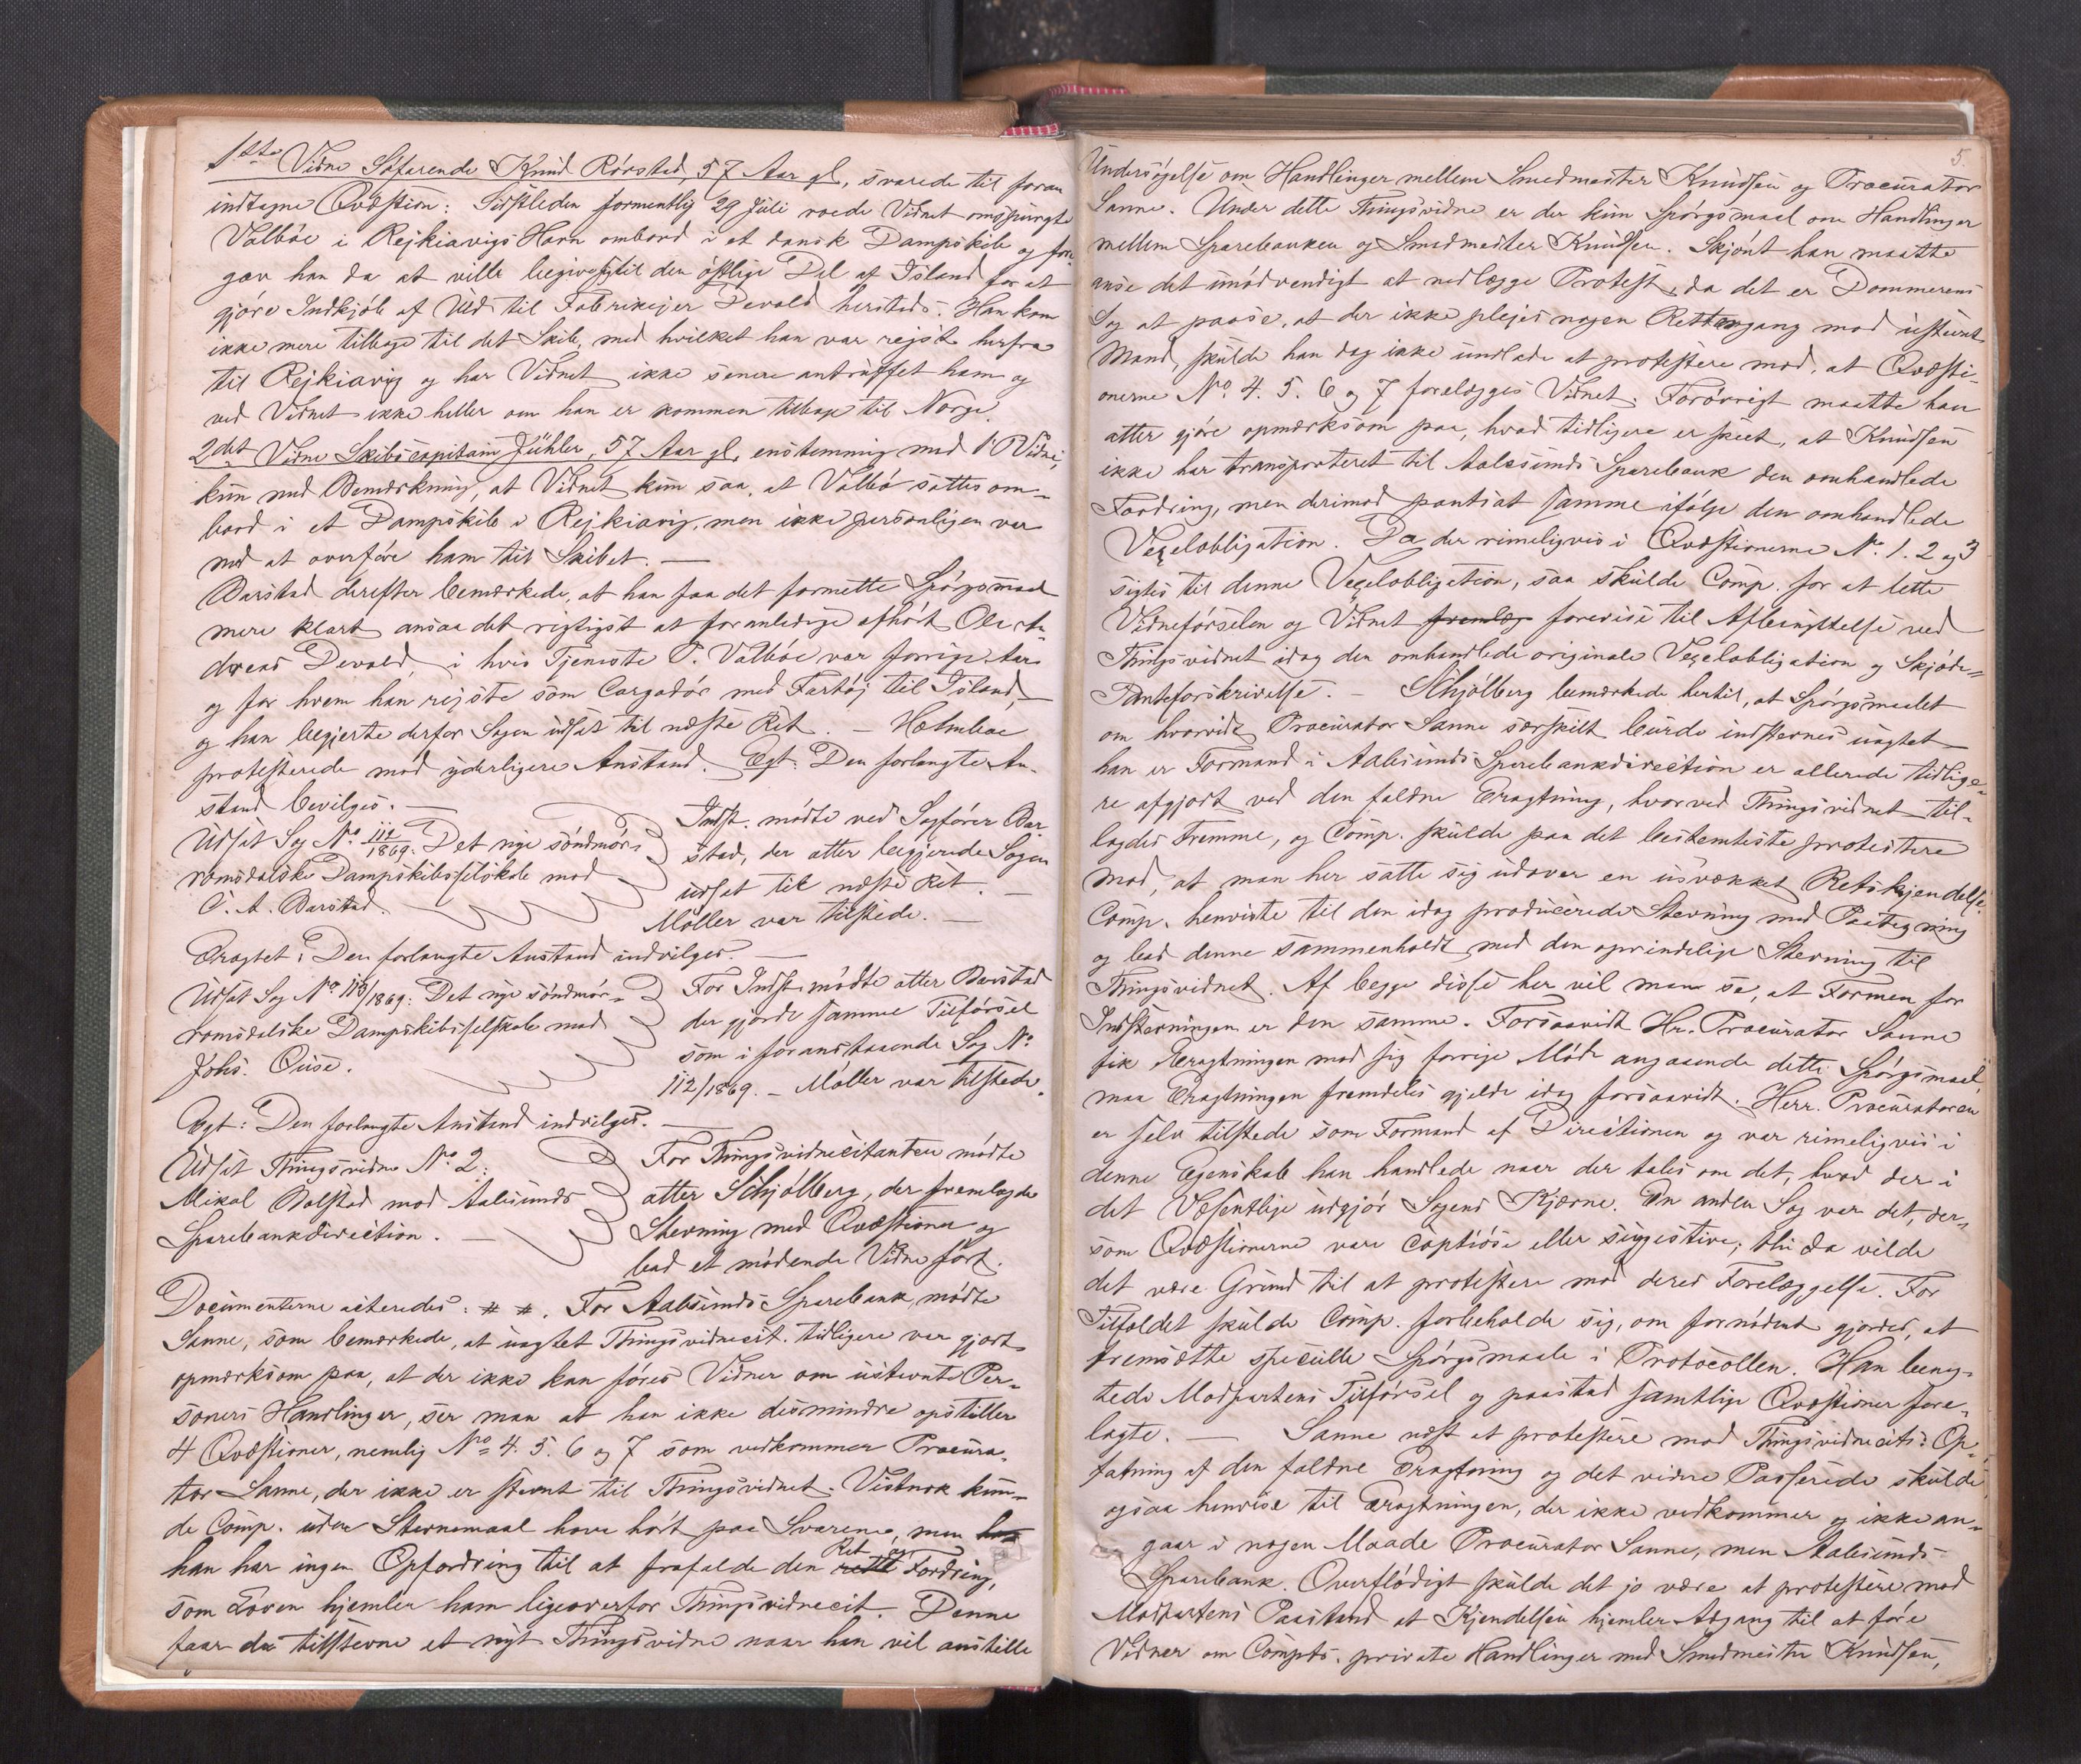 1ste Vidne Söfarende Knud Rörstad, 57 Aar gl, svarede til foran
indtagne Qvæstion: Sidstleden formentlig 29 Juli roede Vidnet omspurgte
Valböe i Rejkiavigs Havn ombord i et dansk Dampskib og fore-
gav han da at ville begive sig til den östlige Del af Island for at
gjöre Indkjöb af Uld til Fabrikejer Devold hersteds. Han kom
ikke mere tilbage til det Skib, med hvilket han var rejst herfra
til Rejkiavig og har Vidnet ikke senere antruffet ham og
ved Vidnet ikke heller om han er kommen tilbage til Norge.
2det Vidne Skibscapitain Jühler, 57 Aar gl, enstemmig med 1' Vidne,
kun med Bemærkning, at Vidnet kun saa, at Valbö sattes om-
bord i et Dampskib i Rejkiavig, men ikke personligen var
med at overföre ham til Skibet. —
Barstad derefter bemærkede, at han for at faa det formette Spörgsmaal
mere klart ansaa det rigtigst at foranledige afhört Ole An-
dreas Devold i hvis Tjeneste P. Valböe var forrige Aar
og for hvem han rejste som Cargadör med Fartöj til Island,
og han begjerte derfor Sagen udsat til næste Ret. — Holmboe
protesterede mod yderligere Anstand. Egt: Den forlangte An-
stand bevilges. —
Udsat Sag No. 112/1869: Det nye söndmör-
romsdalske Dampskibsselskab mod
C. A. Barstad.
Indst. mödte ved Sagförer Bar-
stad, der atter begjerede Sagen
udsat til næste Ret. —
Möller var tilstede. —
Eragtet: Den forlangte Anstand indvilges. —
Udsat Sag No 113/1869: Det nye söndmör-
romsdalske Dampskibsselskab mod
Johs. Cuse.
For Indst. mödte atter Barstad
der gjorde samme Tilförsel
som i foranstaaende Sag No
112/1869. — Möller var tilstede.
Egt: Den forlangte Anstand indvilges. —
Udsat Thingsvidne No 2:
Mikal Dalstad mod Aalesunds
Sparebankdirection. —
For Thingsvidnecitanten mödte
atter Schjölberg, der fremlagde
Stevning med Qvæstioner og
bad et mödende Vidne fört.
Documenterne acteredes: # #. For Aalesunds Sparebank mödte
Sanne, som bemærkede, at uagtet Thingsvidnecit. tidligere var gjort
opmærksom paa, at der ikke kan föres Vidner om ustevnte Per-
soners Handlinger, ser man at han ikke desmindre opstiller
4 Qvæstioner, nemlig No 4. 5. 6 og 7 som vedkommer Procura-
tor Sanne, der ikke er stevnt til Thingsvidnet. Vistnok kun-
de Comp. uden Stevnemaal have hört paa Svarene, men
han har ingen Opfordring til at frafalde den Ret og Fordring,
som Loven hjemler ham ligeoverfor Thingsvidnecit. Denne
faar da tilstevne et nyt Thingsvidne naar han vil anstille
5.
Undersögelse om Handlinger mellem Smedmester Knudsen og Procurator
Sanne. Under dette Thingsvidne er der kun Spörgsmaal om Handlinger
mellem Sparebanken og Smedmester Knudsen. Skjönt han maatte
anse det unödvendigt at nedlægge Protest, da det er Dommerens
Sag at paase, at der ikke plejes nogen Rettergang mod ustevnt
Mand, skulde han dog ikke undlade at protestere mod, at Qvæsti-
onerne No. 4. 5. 6 og 7 forelægges Vidnet. Forövrigt maatte han
atter gjöre opmærksom paa, hvad tidligere er skeet, at Knudsen
ikke har transporteret til Aalesunds Sparebank den omhandlede
Fordring, men derimod pantsat samme ifölge den omhandlede
Vexelobligation. Da der rimeligvis i Qvæstionerne No. 1. 2 og 3
sigtes til denne Vexelobligation, saa skulde Comp. for at lette
Vidneförselen og Vidnet fremlæg forevise til Afbenyttelse ved
Thingsvidnet idag den omhandlede originale Vexelobligation og Skjöde-
Panteforskrivelse. — Schjölberg bemærkede hertil, at Spörgsmaalet
om hvorvidt Procurator Sanne særskilt burde indstevnes uagtet
han er Formand i Aalesunds Sparebankdirection er allerede tidlige-
re afgjort ved den faldne Eragtning, hvorved Thingsvidnet til-
lagdes Fremme, og Comp. skulde paa det bestemteste protestere
mod, at man her satte sig udover en usvækket Retskjendelse.
Comp. henviste til den idag producerede Stevning med Paategning
og bad denne sammenholdt med den oprindelige Stevning til
Thingsvidnet. Af begge disse her vil man se, at Formen for
Indstevningen er den samme. Forsaavidt Hr. Procurator Sanne
fik Eragtningen mod sig forrige Möde angaaende dette Spörgsmaal,
maa Eragtningen fremdeles gjelde idag forsaavidt. Herr. Procuratoren
er selv tilstede som Formand af Directionen og var rimeligvis i
denne Egenskab han handlede naar der tales om det, hvad der i
det Væsentlige udgjör Sagens Kjærne. En anden Sag var det, der-
som Qvæstionerne vare captiöse eller suggestive, thi da vilde
det være Grund til at protestere mod deres Forelæggelse. For
Tilfældet skulde Comp. forbeholde sig, om fornödent gjordes, at
fremsætte specielle Spörgsmaale i Protocollen. Han beneg-
tede Modpartens Tilförsel og paastod samtlige Qvæstioner fore-
lagte. — Sanne næst at protestere mod Thingsvidnecits: Op-
fatning af den faldne Eragtning og det videre Passerede skulde
ogsaa henvise til Eragtningen, der ikke vedkommer og ikke an-
gaar i nogen Maade Procurator Sanne, men Aalesunds
Sparebank. Overflödigt skulde det jo være at protestere mod
Modpartens Paastand at Kjendelsen hjemler Adgang til at före
Vidner om Compts. private Handlinger med Smedmester Knudsen,